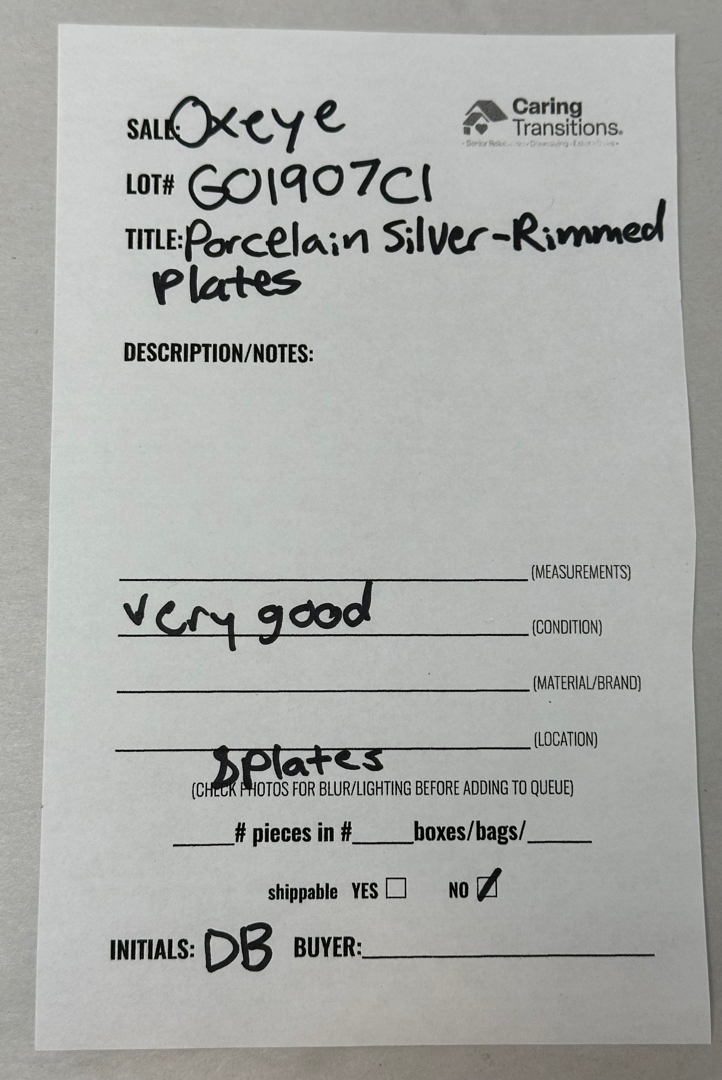 SALE: Oxeye
Caring
Transitions®
LOT# GO1907C1
TITLE: Porcelain Silver-Rimmed
Plates
DESCRIPTION/NOTES:
(MEASUREMENTS)
very good (CONDITION)
(MATERIAL/BRAND)
(LOCATION)
8 Plates
(CHECK PHOTOS FOR BLUR/LIGHTING BEFORE ADDING TO QUEUE)
# pieces in # boxes/bags/
shippable YES NO
INITIALS: DB BUYER: